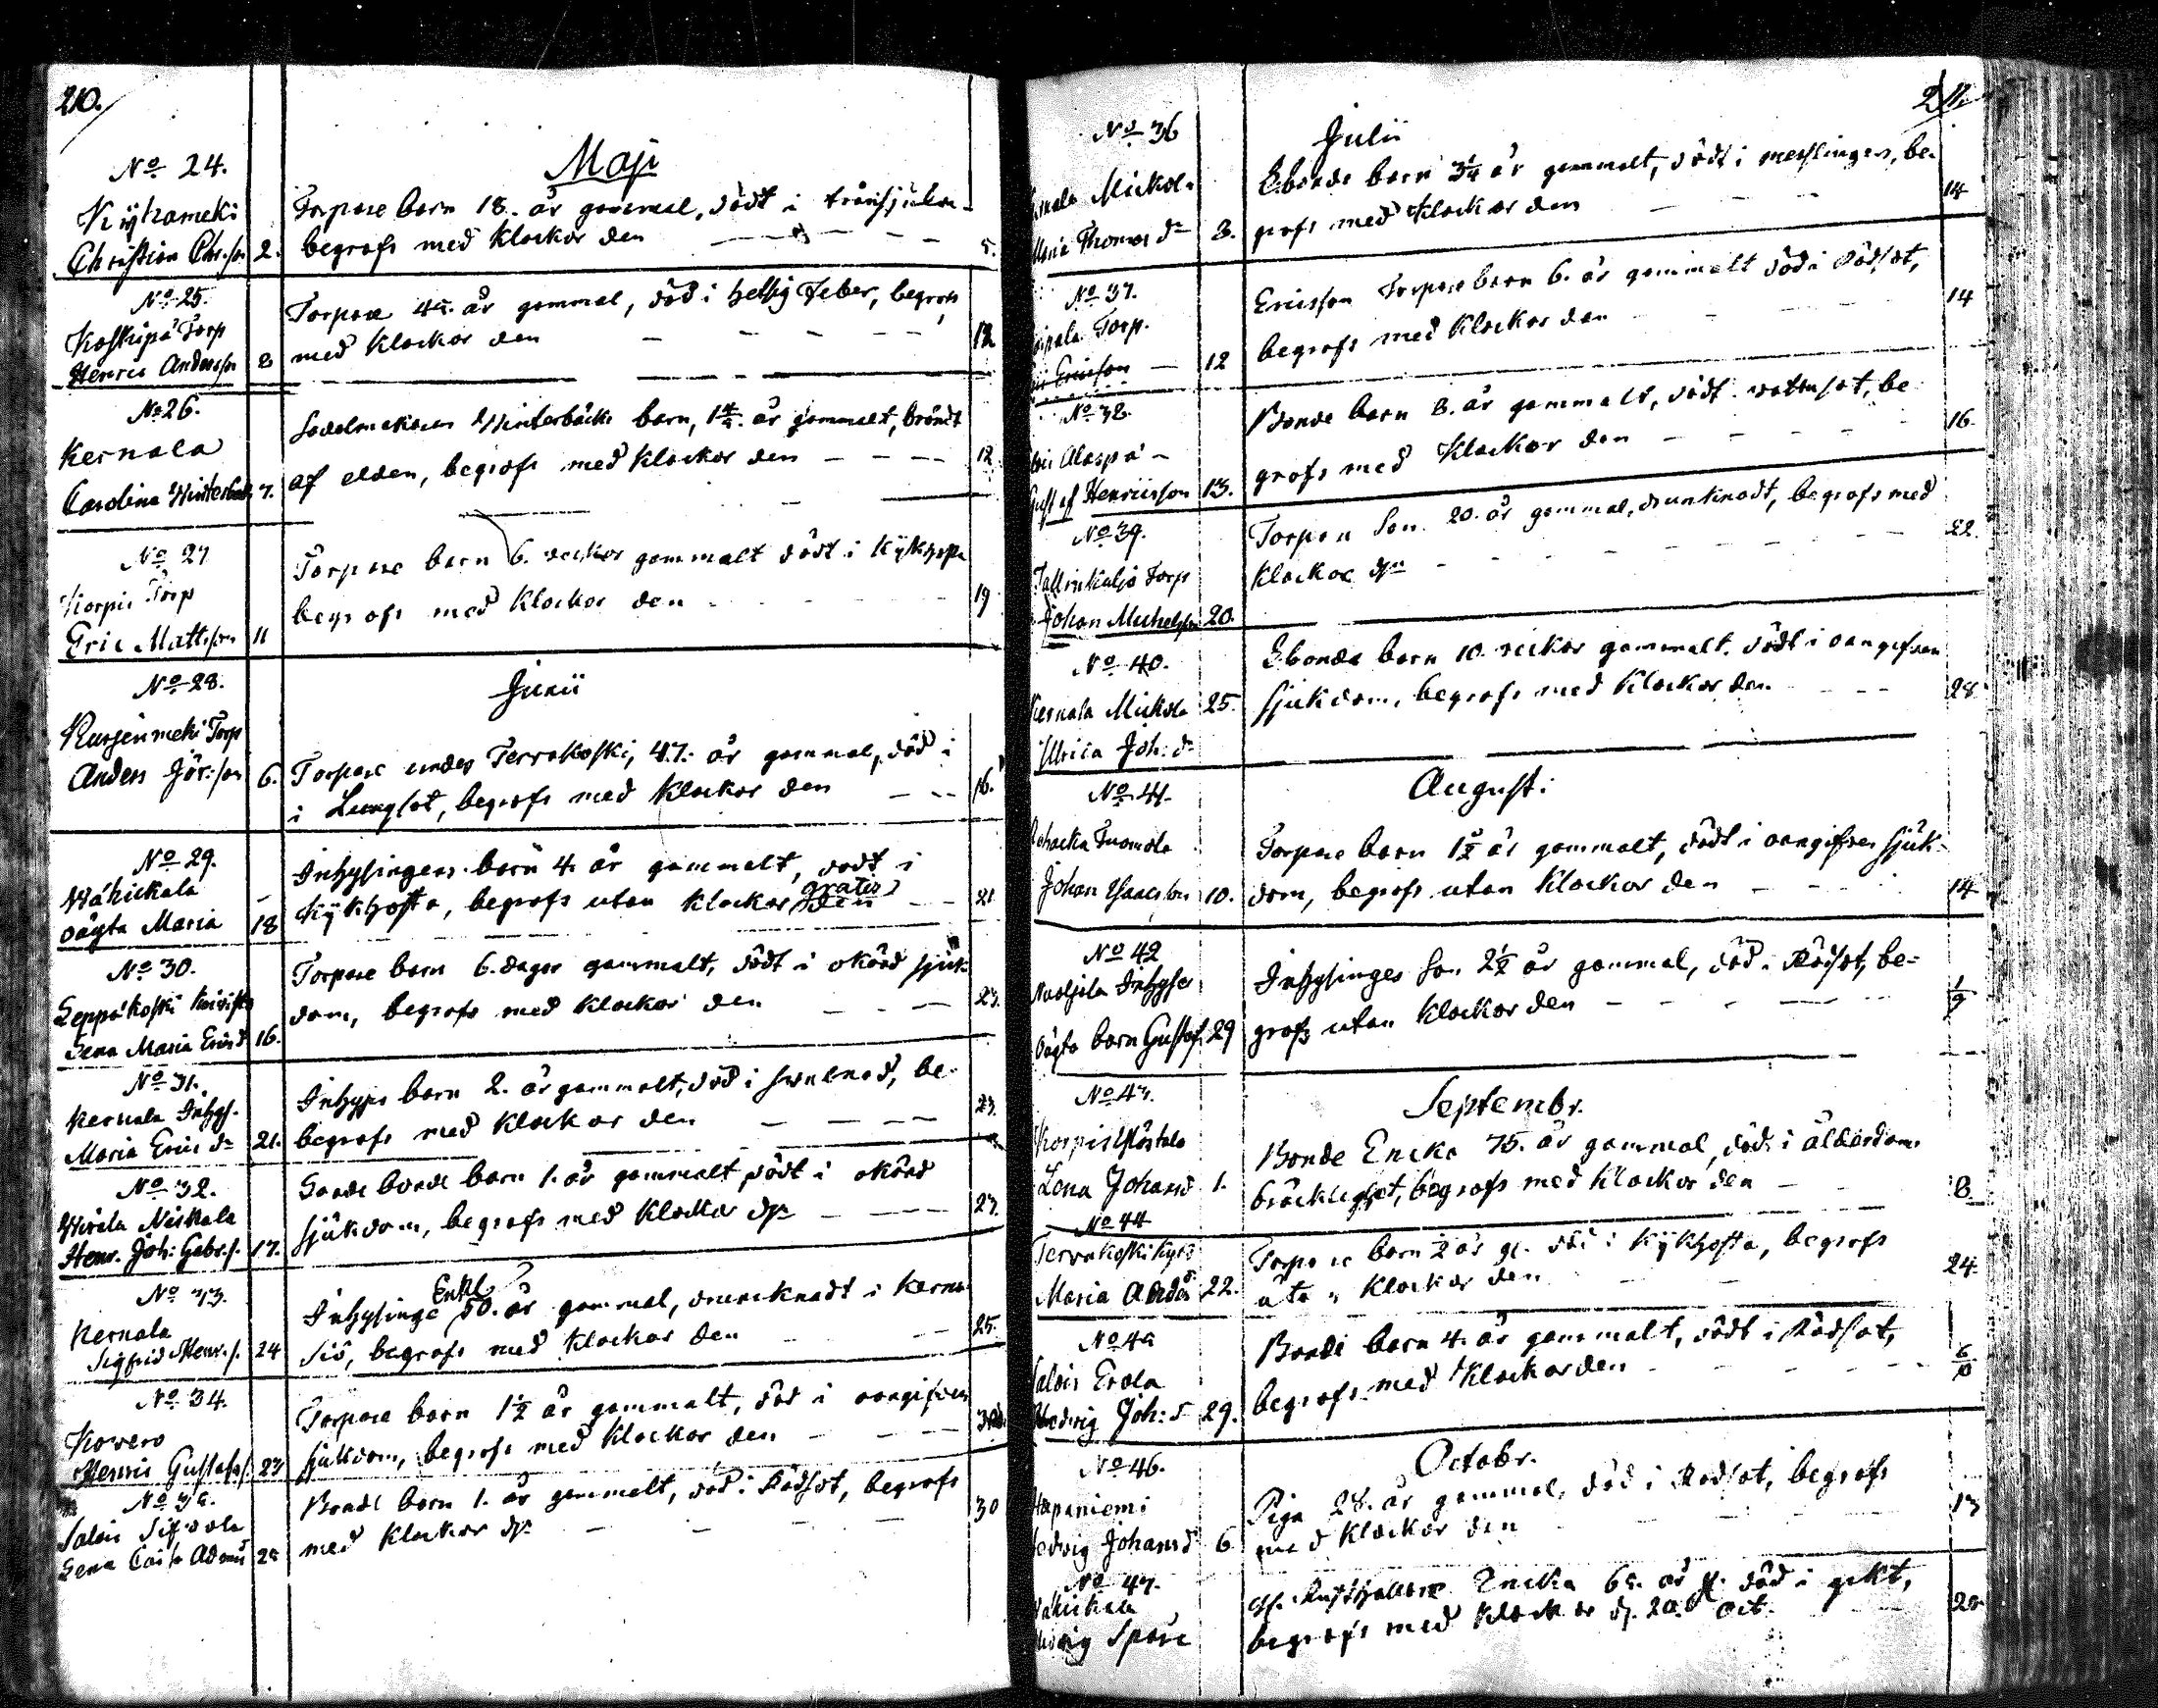 210.
Maji
No 24.
Kyhameki
Christian Chr:son 2.
Torpare barn 18. år gammal, dödt i
begrofs med Klockor den 5.
No 25.
Koskipä Torp
Henric Andersson 8
Torpare 45. år gammal, död i hetsig Feber, begrofs
med Klockor den 12
No 26.
Kernala
Carolina Winterbäck 7.
Sadelmakaren Winterbäcks barn, 1 år gammalt, brändt
af elden, begrofs med Klockor den 12
No 27
Korpis Torp
Eric Mattsson 11
Torpare barn 6. veckor gammalt dödt i Kykhosta
begrofs med Klockor den 19
Junii
No 28.
Kurjenmeki Torp
Anders Jör:son 6.
Torpare under Terrakoski, 47. år gammal, död i
i Lungsot, begrofs med Klockor den 16.
No 29.
Wähickala
oägta Maria 18
Inhysinges barn 4 år gammalt, dödt i
gratis
Kykhosta, begrofs utan klockor den 21
No 30.
Leppäkoski Koivisto
Lena Maria Ericsd 16.
Torpare barn 6. dagar gammalt, dödt i okänd sjuk-
dom, begrofs med Klockor den 23.
No 31.
Kernala Inhys.
Maria Erics dr 21.
Inhyses barn 2. år gammalt, död i svulnad, be-
begrofs med Klockor den 23.
No 32.
Wirala Niskala
Henr. Joh: Gabr.s. 17.
bonde barn 1. år gammalt, dödt i okänd
sjukdom, begrofs med Klockor dn 23.
No 33.
Kernala
Sigfrid Henr.s. 24
Enkl
Inhysinge 50. år gammal, druncknadt i Kerna-
Siö, begrofs med Klockor den 25.
No 34.
Kowero
Henric Gustafs. 23
Torpare barn 1½ år gammalt, död i oangifven
sjukdom, begrofs med Klockor den 30.
No 35.
Salois
Lena Caisa 25
Bonde barn 1. år gammalt, död i Rödsot, begrofs
med Klockor dn 30
211.
Julii
No 36
Mickola
Maria Thomas dr 8.
barn 3¼ år gammalt, dödt i messlingen, be-
grofs med Klockor den 14
No 37.
Torp.
Ericsson 12
Ericsson Torpare barn 6. år gammalt död i Rödsot,
begrofs med Klockor den 14
No 38.
Alaspä
Gustaf Henricsson 13.
Bonde barn 8. år gammalt, dödt vattusot, be
grofs med Klockor den 16.
No 39.
Torp
Johan Michelsson 20.
Torpare Son 20. år gammal, drunknadt, begrofs med
Klockor dn 22.
No 40.
Kernala Mickola 25.
Ulrica Joh: dr
barn 10. veckor gammalt, dödt i oangifven
sjukdom, begrofs med Klockor den 28.
Augusti
No 41.
Tuomola
Johan Isaacsson 10.
Torpare barn 1½ år gammalt, dödt i oangifven sjuk-
dom, begrofs utan Klockor den 14
No 42
Inhyses
Oägta barn Gustaf 29
Inhysinges Son 2½ år gammal, död i Rödsot, be-
grofs utan Klockor den 1/9
Septembr.
No 43.
Korpis
Lena Johansd 1.
Bonde Encka 75. år gammal, död i ålderdoms
bräcklighet, begrofs med Klockor den 8
No 44
Terrvakoski
Maria Andsd 22.
Torpare barn ½ år gl. död i Kykhosta, begrofs
utan Klockor den 24.
No 45
Salois Erola
Hedvig Joh: d 29.
Bonde barn 4. år gammalt, dödt i Rödsot,
begrofs med Klockor den 6/10
Octobr.
No 46.
Haapaniemi
Hedvig Johansd 6
Piga 28. år gammal, död i Rödsot, begrofs
med Klockor den 13
No 47.
Wähickala
Hedvig Spåre
Rusthållare Encka 65. år gl. död i gikt,
begrofs med Klockor d. 20. Oct. 20